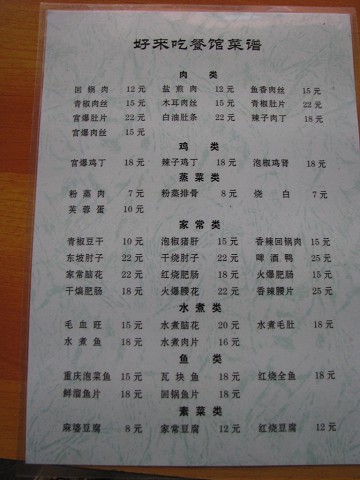 好来吃餐馆菜谱
肉 类
回锅肉 12元 盐煎肉 12元 鱼香肉丝 15元
青椒肉丝 15元 木耳肉丝 15元 青椒肚片 22元
宫爆肚片 22元 白油肚条 22元 辣子肉丁 18元
宫爆肉丝 15元
鸡 类
宫爆鸡丁 18元 辣子鸡丁 18元 泡椒鸡肾 18元
蒸菜类
粉蒸肉 7元 粉蒸排骨 8元 烧白 7元
芙蓉蛋 10元
家常类
青椒豆干 10元 泡椒猪肝 15元 香辣回锅肉 15元
东坡肘子 22元 干烧肘子 22元 啤酒鸭 25元
家常脑花 22元 红烧肥肠 18元 火爆肥肠 15元
干煸肥肠 18元 火爆腰花 22元 香辣腰片 25元
水煮类
毛血旺 15元 水煮脑花 20元 水煮毛肚 18元
水煮鱼 18元 水煮肉片 16元
鱼 类
重庆泡菜鱼 15元 瓦块鱼 18元 红烧全鱼 18元
鲜溜鱼片 18元 回锅鱼片 18元
素菜类
麻婆豆腐 8元 家常豆腐 12元 红烧豆腐 12元